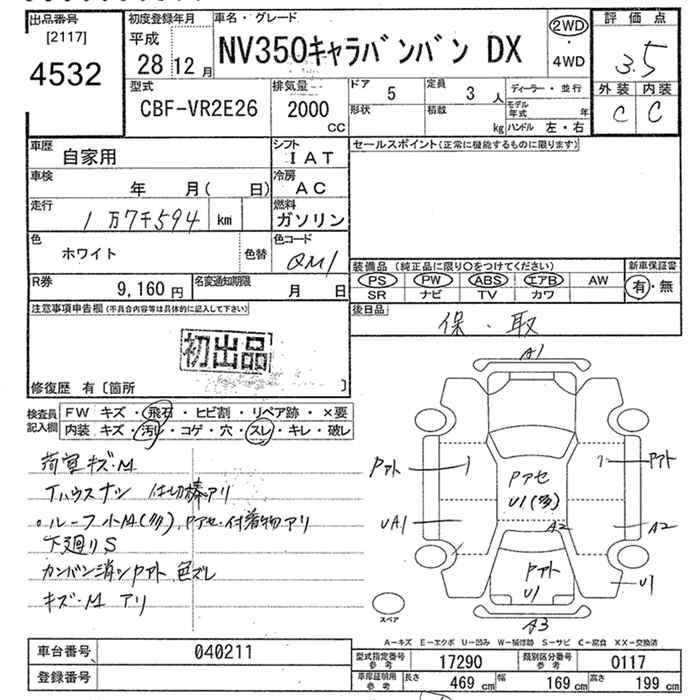 出品番号
[2117]
4532
初度登録年月
平成
28 12 月
車名・グレード
NV350キャラバンバン DX
2WD
・
4WD
評価点
3.5
外装 内装
C C
型式
CBF-VR2E26
排気量
2000
CC
ドア 5
定員 3 人
形状
積載 kg
ディーラー・並行
モデル年式 年
ハンドル 左・右
車歴 自家用
シフト IAT
車検 年 月( 日)
冷房 AC
走行 1万7千594 km
燃料 ガソリン
色 ホワイト 色替
色コード QM1
R券 9,160 円
名変通知期限 月 日
セールスポイント(正常に機能するものに限ります)
装備品(純正品に限り〇をつけてください)
新車保証書
PS PW ABS エアB AW
SR ナビ TV カワ
有・無
後日品
保・取
注意事項申告欄(不具合内容等は具体的に記入して下さい)
初出品
修復歴 有〔箇所 〕
検査員記入欄
FW キズ・飛石・ヒビ割・リペア跡・×要
内装 キズ・汚レ・コゲ・穴・スレ・キレ・破レ
荷室キズ・M
Tハウスナシ 仕切棒アリ
。ルーフ小M(多)、Pアセ・付着物アリ
下廻りS
カンバン消シPアト、色ズレ
キズ・M アリ
A1
Pアト
Pアト
Pアセ
U1(多)
UA1
A2
A2
Pアト
U1
U1
A3
スペア
A-キズ E-エクボ U-凹み W-補修跡 S-サビ C-腐食 XX-交換済
車台番号 040211
登録番号
型式指定番号 参考 17290
類別区分番号 参考 0117
車庫証明用 参考 長さ 469 cm 幅 169 cm 高さ 199 cm